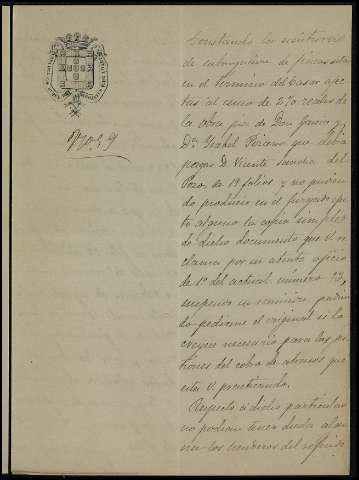 Nº 59
Constando los
de subrogacion de fincas sitas
en el termino del Casar afec
tas al censo de 270 reales de
la obra pia de Don Garcia y
Dª Ysabel que debia
pagar D. Vicente Sanchez del
Pozo, de 19 folios, y no puedien
do producir en el Juzgado efec
to alguno la copia simple
de dicho documento que V. re
clama por su atento oficio
de 1º del actual número 12,
suspendo su remision, pudien
do pedirme el original si lo
creyese necesario para las ges
tiones del cobro de atrasos que
esta V. practicando.
Respecto á dicho particular
no podian tener duda algu
na los herederos del referido